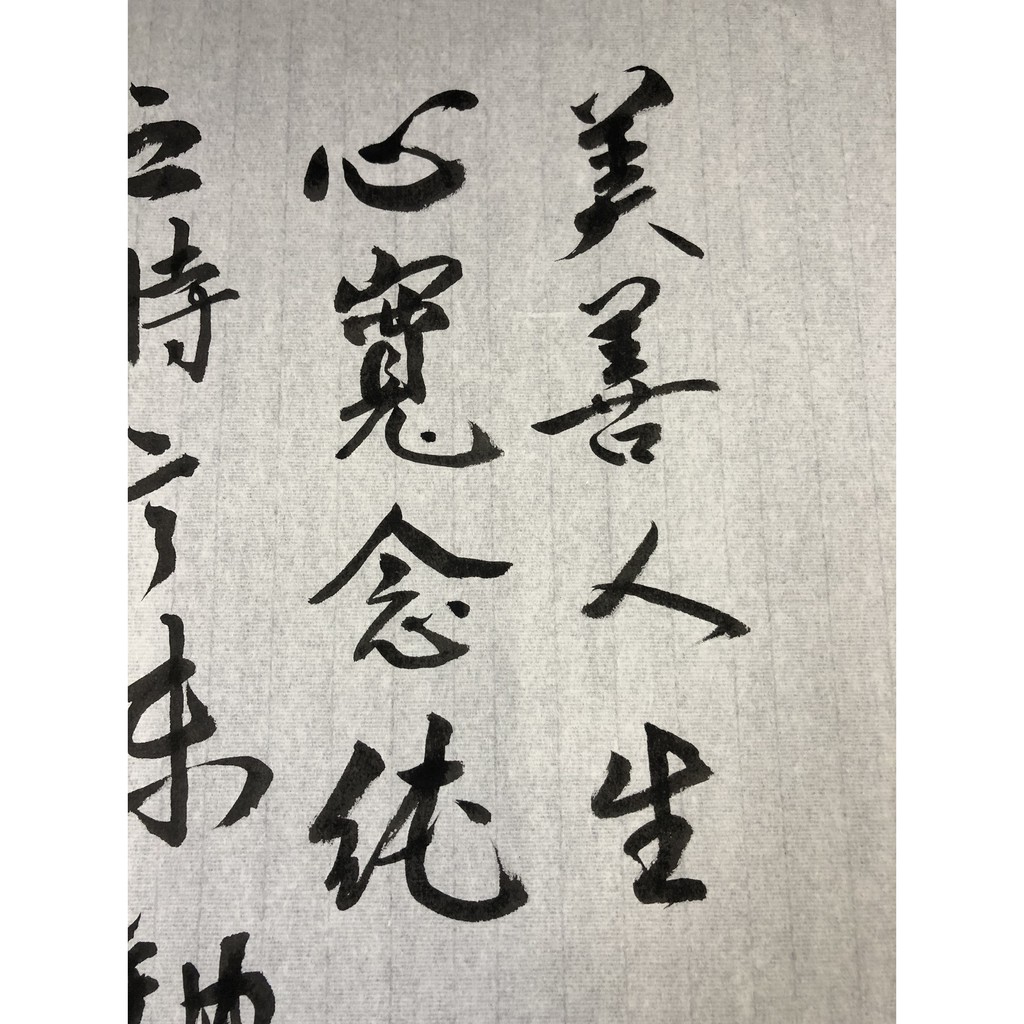 美善人生
心寬念純
立時